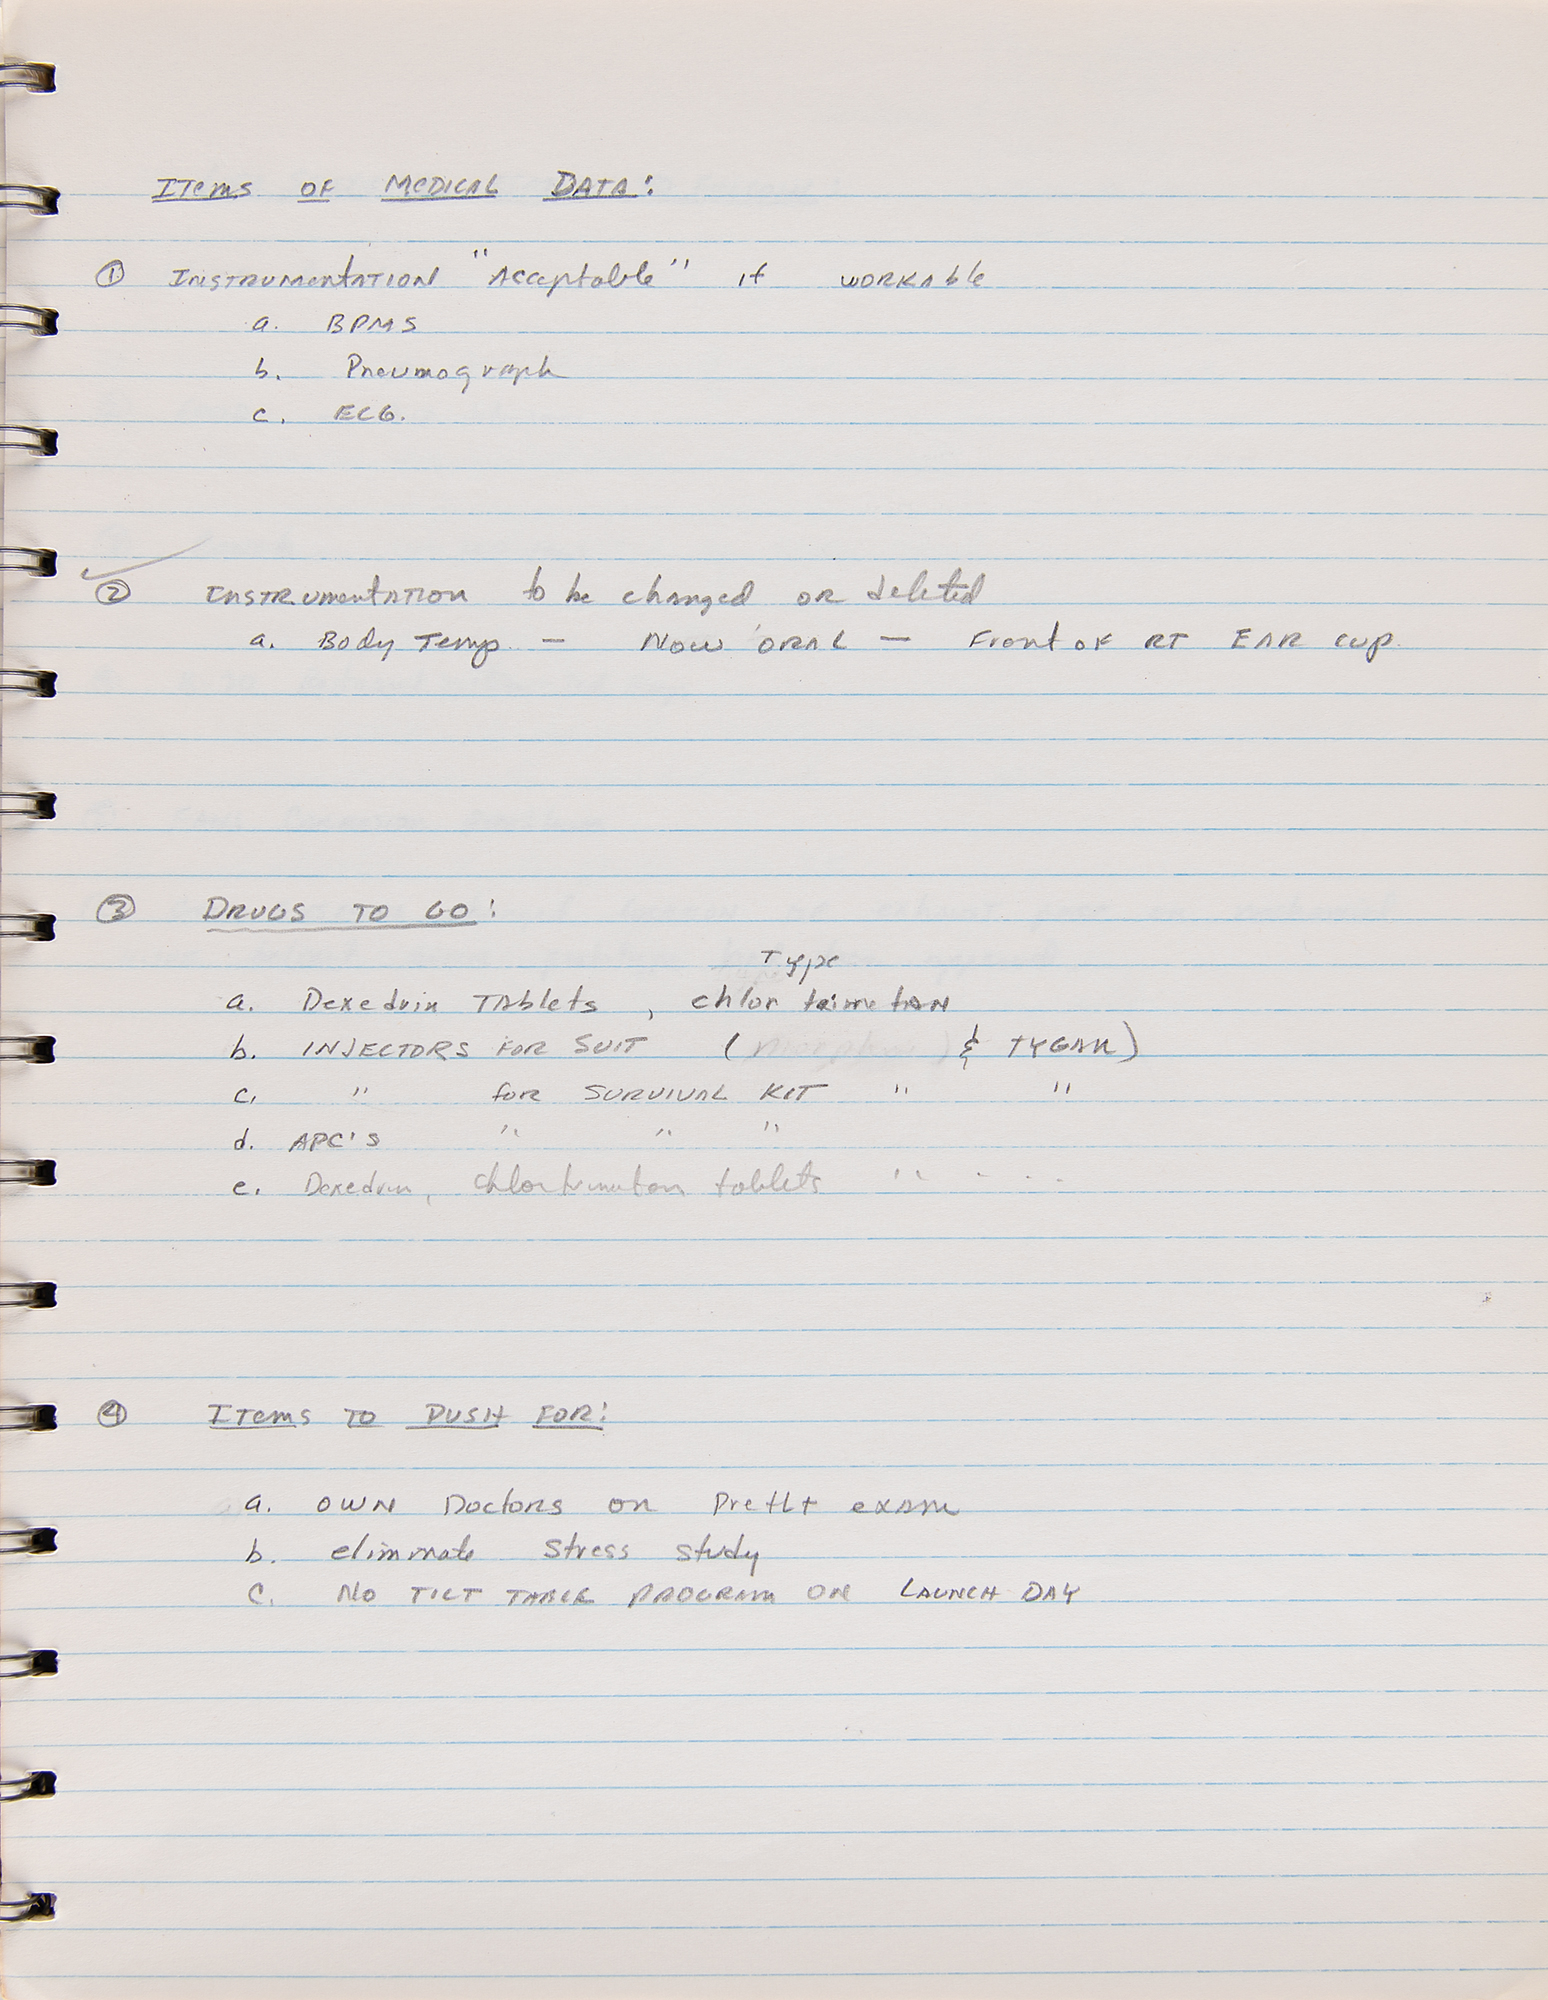 ITEMS OF MEDICAL DATA:
① INSTRUMENTATION "Acceptable" if WORKABLE
a. BPMS
b. Pneumograph
c. ECG.
② INSTRUMENTATION to be changed OR deleted
a. Body Temp - NOW ORAL - Front OF RT EAR CUP
③ DRUGS TO GO:
Type
a. Dexedrin TABlets, chlor trimetAN
b. INJECTORS FOR SUIT ( & TYGAN)
c. " for SURVIVAL KIT " "
d. APC'S " " "
e. Dexedrin, chlortrimeton tablets "
④ ITEMS TO PUSH FOR:
a. OWN Doctors on Preflt exam
b. eliminate stress study
c. NO TILT TABLE PROGRAM ON LAUNCH DAY